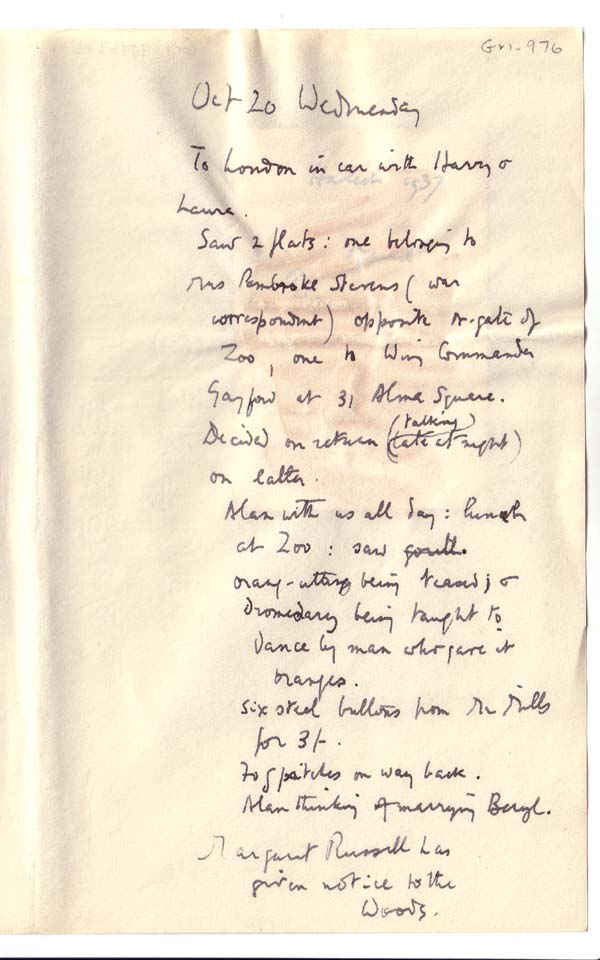 Gri-976
Oct 20 Wednesday
To London in car with Harry &
Laura.
Saw 2 flats: one belonging to
Mrs Pembroke Stevens (war
correspondent) opposite N. gate of
Zoo, one to Wing Commander
Gayford at 31 Alma Square.
Decided on return (talking)
(late at night)
on latter.
Alan with us all day: lunch
at Zoo: saw
orang-utang being teased; &
Dromedary being taught to
dance by man who gave it
oranges.
Six steel buttons from Mr Mills
for 3/-.
Fog patches on way back.
Alan thinking of marrying Beryl.
Margaret Russell has
given notice to the
Woods.